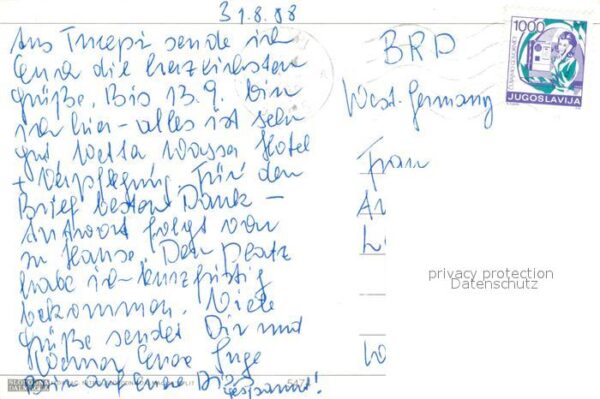 31.8.88
Aus Tucepi sende ich
Euch die herzlichsten
Grüße. Bis 13.9. bin
ich hier - alles ist sehr
gut, Wetter Wasser Hotel
+ Verpflegung. Für den
Brief besten Dank -
Antwort folgt von
zu Hause. Den Platz
habe ich kurzfristig
bekommen. Viele
Grüße sendet Dir und
Euere Inge
Bin auf Euere Dias
gespannt!
BRD
West-Germany
Frau
1000
JUGOSLAVIJA
privacy protection
Datenschutz